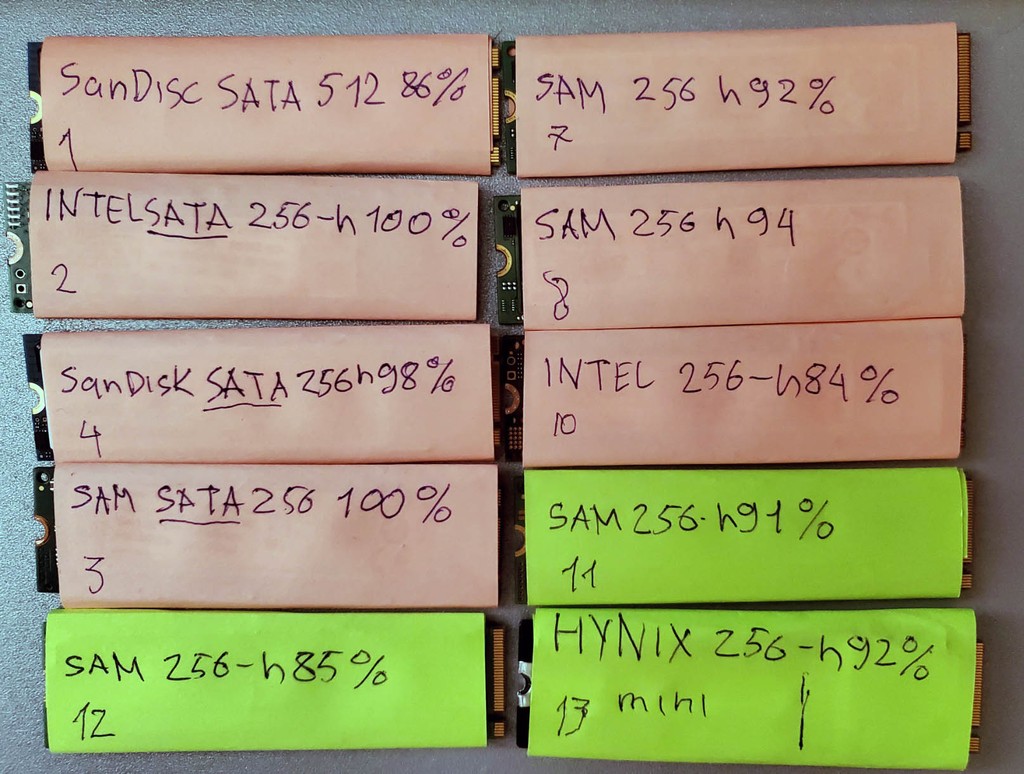 SanDisc SATA 512 86%
1
INTEL SATA 256-h100%
2
SanDisk SATA 256h98%
4
SAM SATA 256 100%
3
SAM 256-h85%
12
SAM 256 h92%
7
SAM 256 h94
8
INTEL 256-h84%
10
SAM 256-h91%
11
HYNIX 256-h92%
13 mini